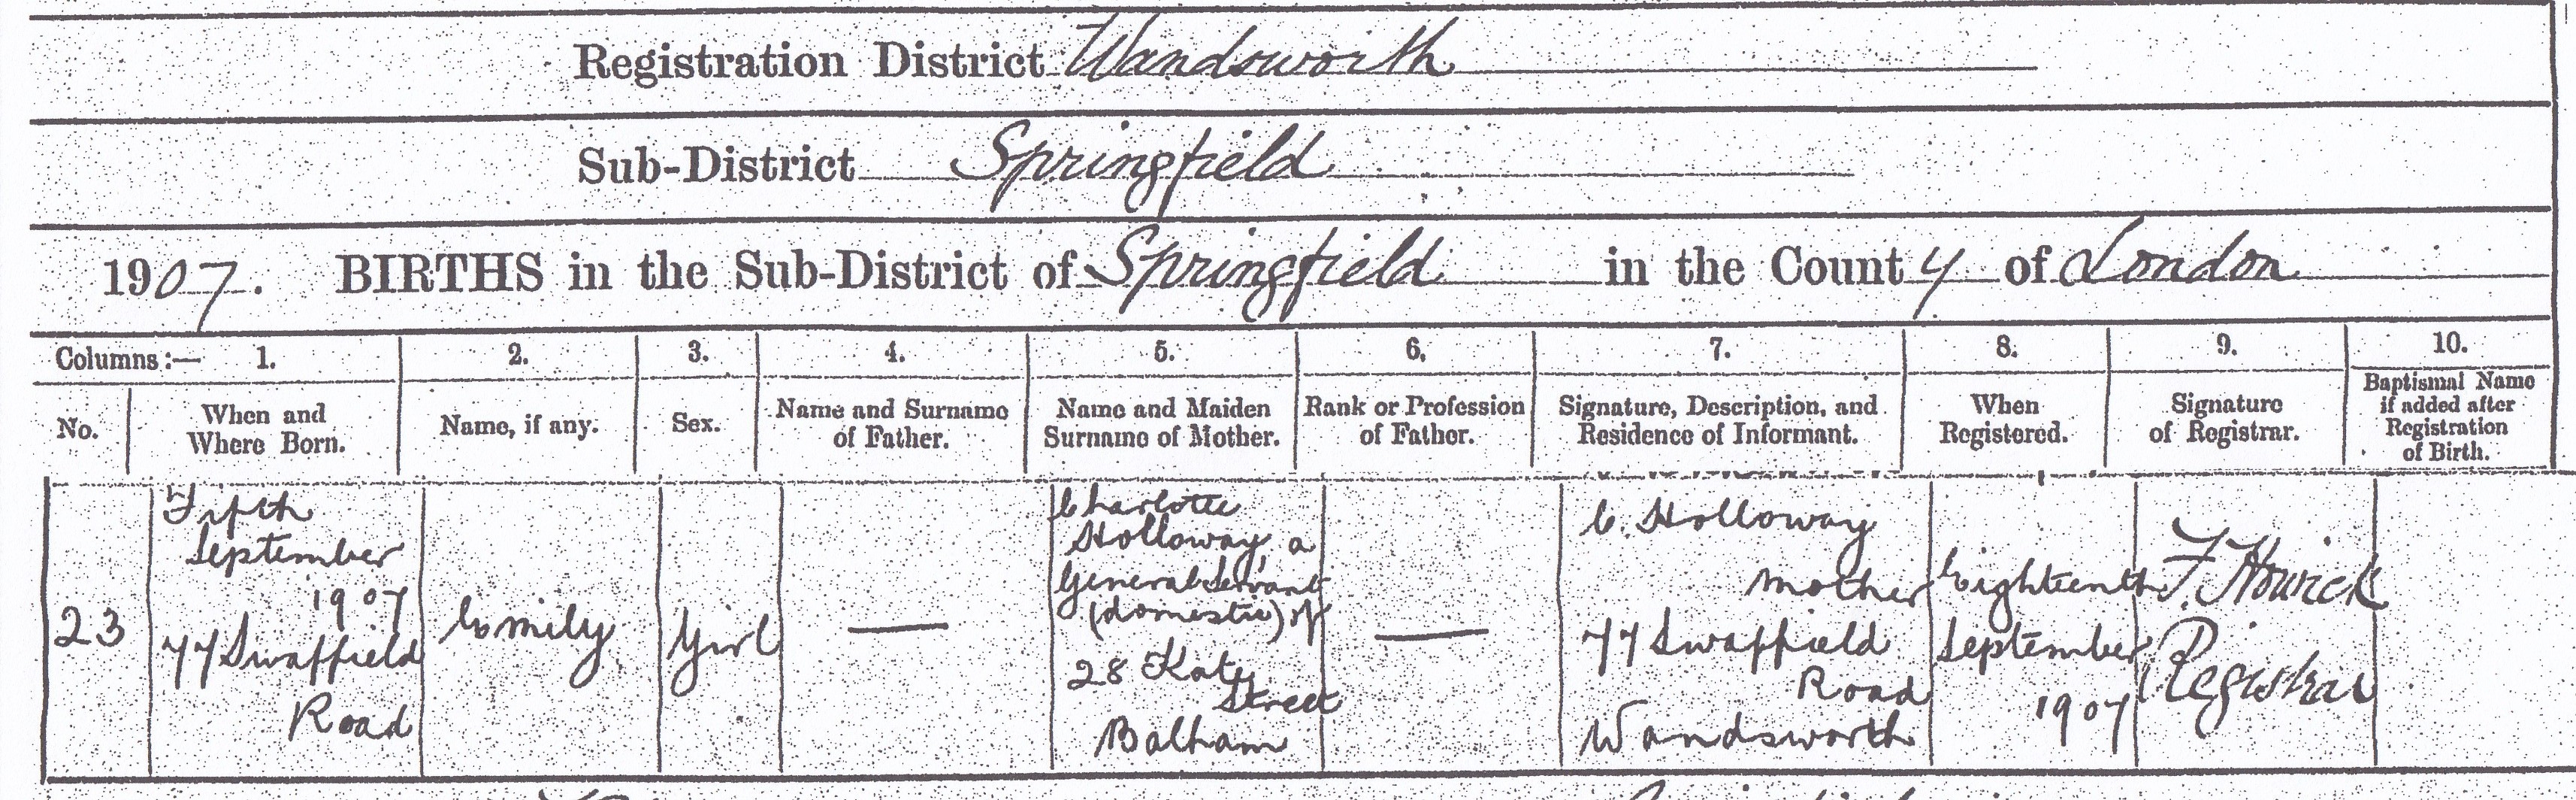 Registration District Wandsworth
Sub-District Springfield
1907. BIRTHS in the Sub-District of Springfield in the County of London
Columns:— 1. 2. 3. 4. 5. 6. 7. 8. 9. 10.
No.
When and
Where Born.
Name, if any.
Sex.
Name and Surname
of Father.
Name and Maiden
Surname of Mother.
Rank or Profession
of Father.
Signature, Description, and
Residence of Informant.
When
Registered.
Signature
of Registrar.
Baptismal Name
if added after
Registration
of Birth.
23
Fifth
September
1907
77 Swaffield
Road
Emily
Girl
—
Charlotte
Holloway a
General Servant
(domestic) of
28 Kate
Street
Balham
—
C. Holloway
mother
77 Swaffield
Road
Wandsworth
Eighteenth
September
1907
F. Howick
Registrar